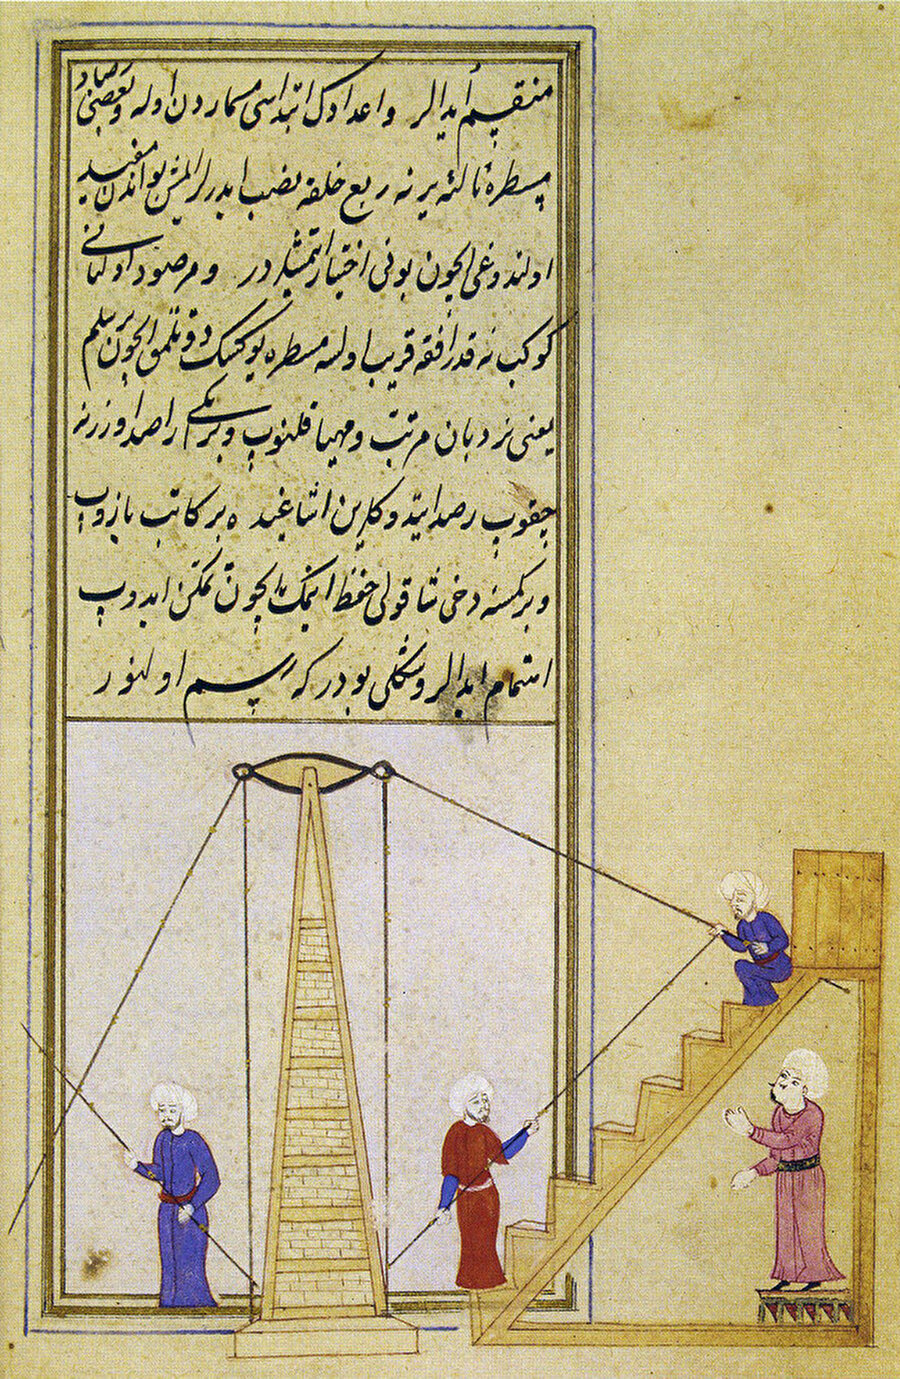 منقسم ایدالر واعدادک ابتداسی مسماردن اوله وبعضی رصاد
مسطرهٔ ثالثه یرنه ربع حلقه نصب ایدرلر ایمش بو اندن مفید
اولندوغی ایچون بونی اختیار ایتمشلردر ومرصود اولانی
کوکب نه قدر افقه قریب اولسه مسطره یوکسک دوتلمق ایچون بر سلم
یعنی نردبان مرتب ومهیا قلنوب راصد اوزرنه
چقوب رصد ایده بر کاتب یازوب
وبر کمسنه دخی شاقولی حفظ ایتمک ایچون تمکن ایدوب
اهتمام ایدالر وشکلی بودر که رسم اولنور